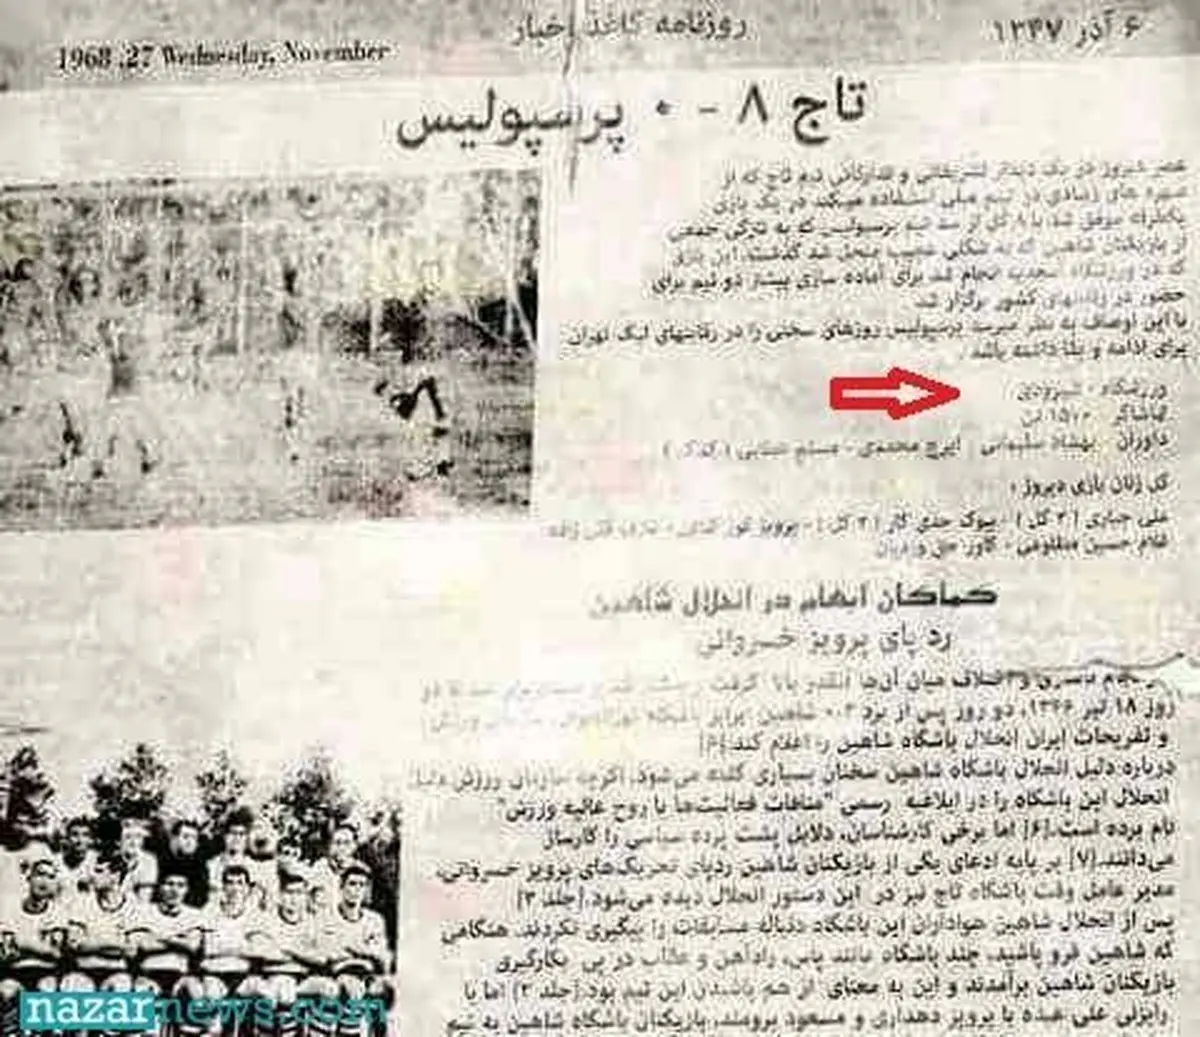 ۶ آذر ۱۳۴۷
روزنامه کاغذ اخبار
1968 ,27 Wednesday, November
تاج ۸ - ۰ پرسپولیس
عصر دیروز در یک دیدار تشریفاتی و تدارکاتی تیم تاج که از
مهره های زیادی در تیم ملی استفاده میکند در یک بازی
یکطرفه موفق شد با ۸ گل از سد تیم پرسپولیس که به تازگی جمعی
از بازیکنان شاهین که به شکلی عجیب منحل شد گذشت. این بازی
که در ورزشگاه امجدیه انجام شد برای آماده سازی بیشتر دو تیم برای
حضور در رقابتهای کشور برگزار شد
با این اوصاف به نظر میرسد پرسپولیس روزهای سختی را در رقابتهای لیگ تهران
برای ادامه و بقا داشته باشد.
ورزشگاه - شیرودی
تماشاگر ۱۵۰۰ تن
داوران بهشاد سلیمانی ایرج محمدی - مسلم (کمک)
گل زنان بازی دیروز :
علی جباری (۲ گل) - بیوک جدی کار (۲ گل) - پرویز -
غلام حسین مظلومی - کارو حق وردیان
کماکان ابهام در انحلال شاهین
رد پای پرویز خسروانی
اختلاف میان آن‌ها آنقدر بالا گرفت
روز ۱۸ تیر ۱۳۴۶، دو روز پس از برد ۳-۰ شاهین برابر باشگاه تهرانجوان، سازمان ورزش
و تفریحات ایران انحلال باشگاه شاهین را اعلام کند.[۶]
درباره دلیل انحلال باشگاه شاهین سخنان بسیاری گفته می‌شود. اگرچه سازمان ورزش دلیل
انحلال این باشگاه را در ابلاغیه رسمی "منافات فعالیت‌ها با روح عالیه ورزش"
نام برده است.[۶] اما برخی کارشناسان، دلایل پشت پرده سیاسی را کارساز
می‌دانند.[۷] بر پایه ادعای یکی از بازیکنان شاهین ردپای تحریک‌های پرویز خسروانی،
مدیر عامل وقت باشگاه تاج نیز در این دستور انحلال دیده می‌شود.[جلد ۳]
پس از انحلال شاهین هواداران این باشگاه دنباله مسابقات را پیگیری نکردند. هنگامی
که شاهین فرو پاشید، چند باشگاه مانند پاس، راه‌آهن و عقاب در پی بکارگیری
بازیکنان شاهین برآمدند و این به معنای از هم پاشیدن این تیم بود.[جلد ۲] اما با
رایزنی علی عبده با پرویز دهداری و مسعود برومند، بازیکنان باشگاه شاهین به تیم
nazarnews.com